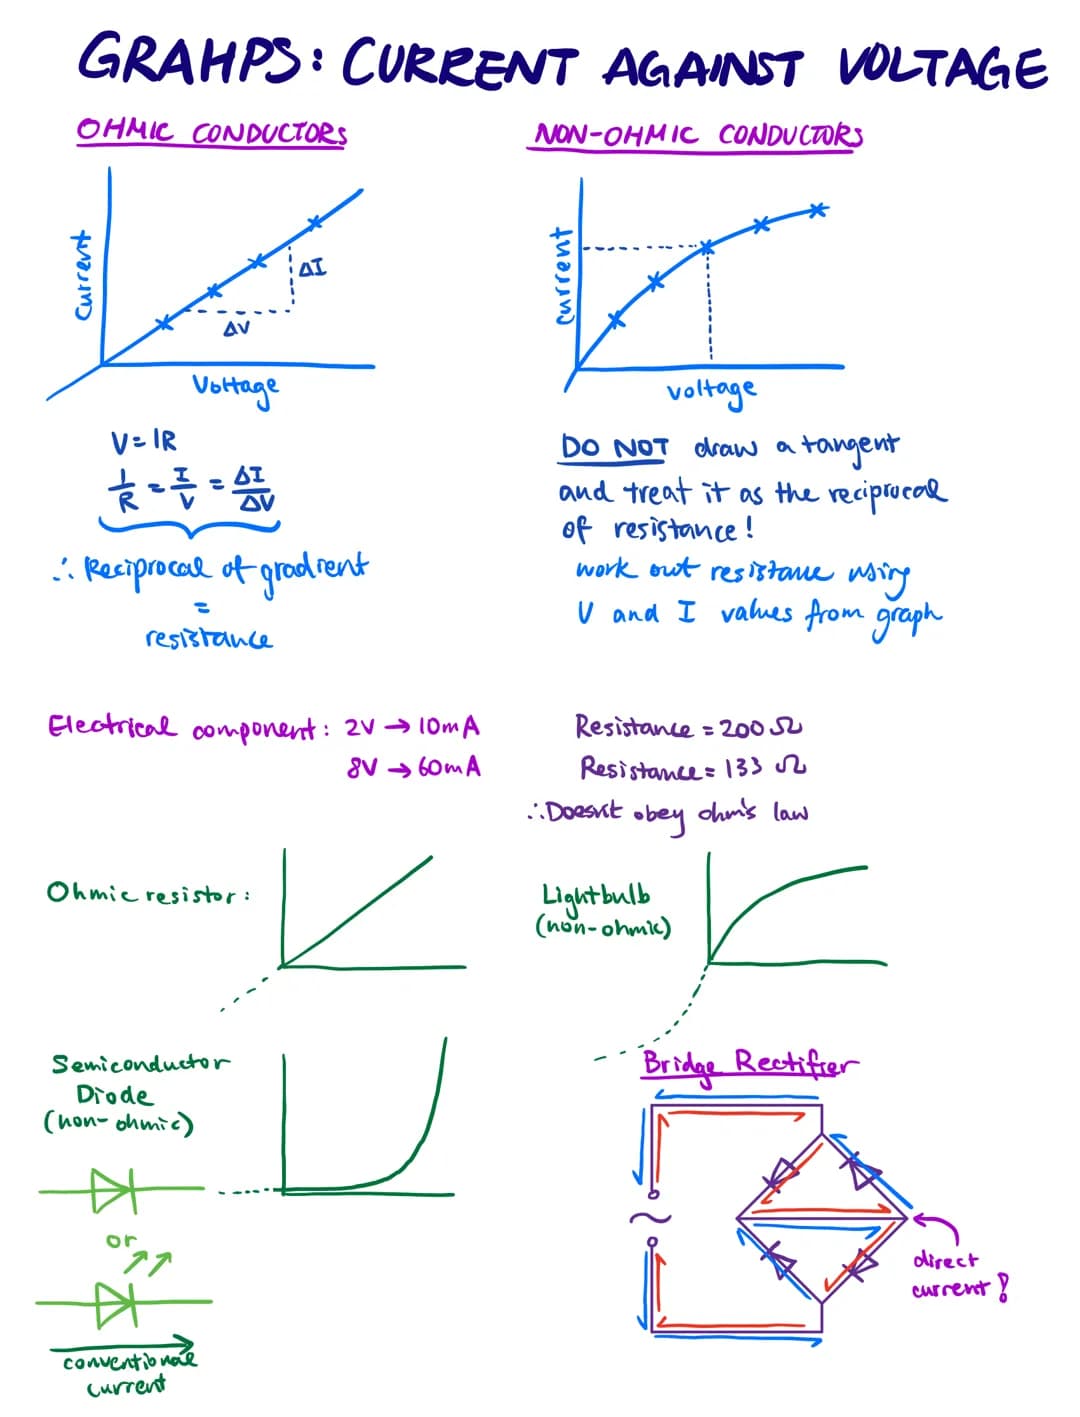 GRAHPS: CURRENT AGAINST VOLTAGE
OHMIC CONDUCTORS
Current
ΔI
ΔV
Voltage
V = IR
1/R = I/V = ΔI/ΔV
∴ Reciprocal of gradient
=
resistance
NON-OHMIC CONDUCTORS
current
voltage
DO NOT draw a tangent
and treat it as the reciprocal
of resistance!
work out resistance using
V and I values from graph
Electrical component: 2V → 10mA
8V → 60mA
Resistance = 200 Ω
Resistance = 133 Ω
∴ Doesn't obey ohm's law
Ohmic resistor:
Lightbulb
(non-ohmic)
Semiconductor
Diode
(non-ohmic)
or
conventional
current
Bridge Rectifier
~
direct
current!